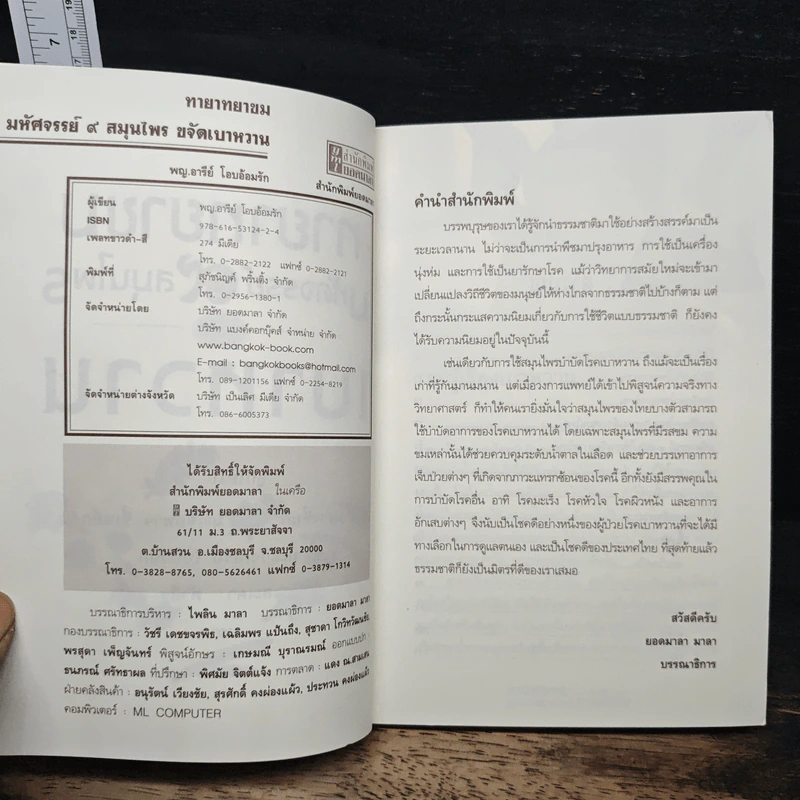 ทายาทยาขม
มหัศจรรย์ ๙ สมุนไพร ขจัดเบาหวาน
สำนักพิมพ์
ยอดมาลา
พญ.อารีย์ โอบอ้อมรัก
สำนักพิมพ์ยอดมาลา
ผู้เขียน พญ.อารีย์ โอบอ้อมรัก
ISBN 978-616-53124-2-4
เพลทขาวดำ-สี 274 มีเดีย
โทร. 0-2882-2122 แฟกซ์ 0-2882-2121
พิมพ์ที่ สุภัชนิญค์ พริ้นติ้ง จำกัด
โทร. 0-2956-1380-1
จัดจำหน่ายโดย บริษัท ยอดมาลา จำกัด
บริษัท แบงค์คอกบุ๊คส์ จำหน่าย จำกัด
www.bangkok-book.com
E-mail : bangkokbooks@hotmail.com
โทร. 089-1201156 แฟกซ์ 0-2254-8219
จัดจำหน่ายต่างจังหวัด บริษัท เป็นเลิศ มีเดีย จำกัด
โทร. 086-6005373
ได้รับสิทธิ์ให้จัดพิมพ์
สำนักพิมพ์ยอดมาลา ในเครือ
บริษัท ยอดมาลา จำกัด
61/11 ม.3 ถ.พระยาสัจจา
ต.บ้านสวน อ.เมืองชลบุรี จ.ชลบุรี 20000
โทร. 0-3828-8765, 080-5626461 แฟกซ์ 0-3879-1314
บรรณาธิการบริหาร : ไพลิน มาลา บรรณาธิการ : ยอดมาลา มาลา
กองบรรณาธิการ : วัชรี เดชขจรพิธ, เฉลิมพร แป้นถึง, สุชาดา โกวิทวัฒนชัย,
พรสุดา เพ็ญจันทร์ พิสูจน์อักษร : เกษมณี บุราณรมณ์ ออกแบบปก :
ธนภรณ์ ศรัทธาผล ที่ปรึกษา : พิศมัย จิตต์แจ้ง การตลาด : แดง ณ.สามเสน
ฝ่ายคลังสินค้า : อนุรัตน์ เวียงชัย, สุรศักดิ์ คงผ่องแผ้ว, ประทวน คงผ่องแผ้ว
คอมพิวเตอร์ : ML COMPUTER
คำนำสำนักพิมพ์
บรรพบุรุษของเราได้รู้จักนำธรรมชาติมาใช้อย่างสร้างสรรค์มาเป็น
ระยะเวลานาน ไม่ว่าจะเป็นการนำพืชมาปรุงอาหาร การใช้เป็นเครื่อง
นุ่งห่ม และการใช้เป็นยารักษาโรค แม้ว่าวิทยาการสมัยใหม่จะเข้ามา
เปลี่ยนแปลงวิถีชีวิตของมนุษย์ให้ห่างไกลจากธรรมชาติไปบ้างก็ตาม แต่
ถึงกระนั้นกระแสความนิยมเกี่ยวกับการใช้ชีวิตแบบธรรมชาติ ก็ยังคง
ได้รับความนิยมอยู่ในปัจจุบันนี้
เช่นเดียวกับการใช้สมุนไพรบำบัดโรคเบาหวาน ถึงแม้จะเป็นเรื่อง
เก่าที่รู้กันมานมนาน แต่เมื่อวงการแพทย์ได้เข้าไปพิสูจน์ความจริงทาง
วิทยาศาสตร์ ก็ทำให้คนเรายิ่งมั่นใจว่าสมุนไพรของไทยบางตัวสามารถ
ใช้บำบัดอาการของโรคเบาหวานได้ โดยเฉพาะสมุนไพรที่มีรสขม ความ
ขมเหล่านั้นได้ช่วยควบคุมระดับน้ำตาลในเลือด และช่วยบรรเทาอาการ
เจ็บป่วยต่างๆ ที่เกิดจากภาวะแทรกซ้อนของโรคนี้ อีกทั้งยังมีสรรพคุณใน
การบำบัดโรคอื่น อาทิ โรคมะเร็ง โรคหัวใจ โรคผิวหนัง และอาการ
อักเสบต่างๆ จึงนับเป็นโชคดีอย่างหนึ่งของผู้ป่วยโรคเบาหวานที่จะได้มี
ทางเลือกในการดูแลตนเอง และเป็นโชคดีของประเทศไทย ที่สุดท้ายแล้ว
ธรรมชาติก็ยังเป็นมิตรที่ดีของเราเสมอ
สวัสดีครับ
ยอดมาลา มาลา
บรรณาธิการ
7
17
18
19